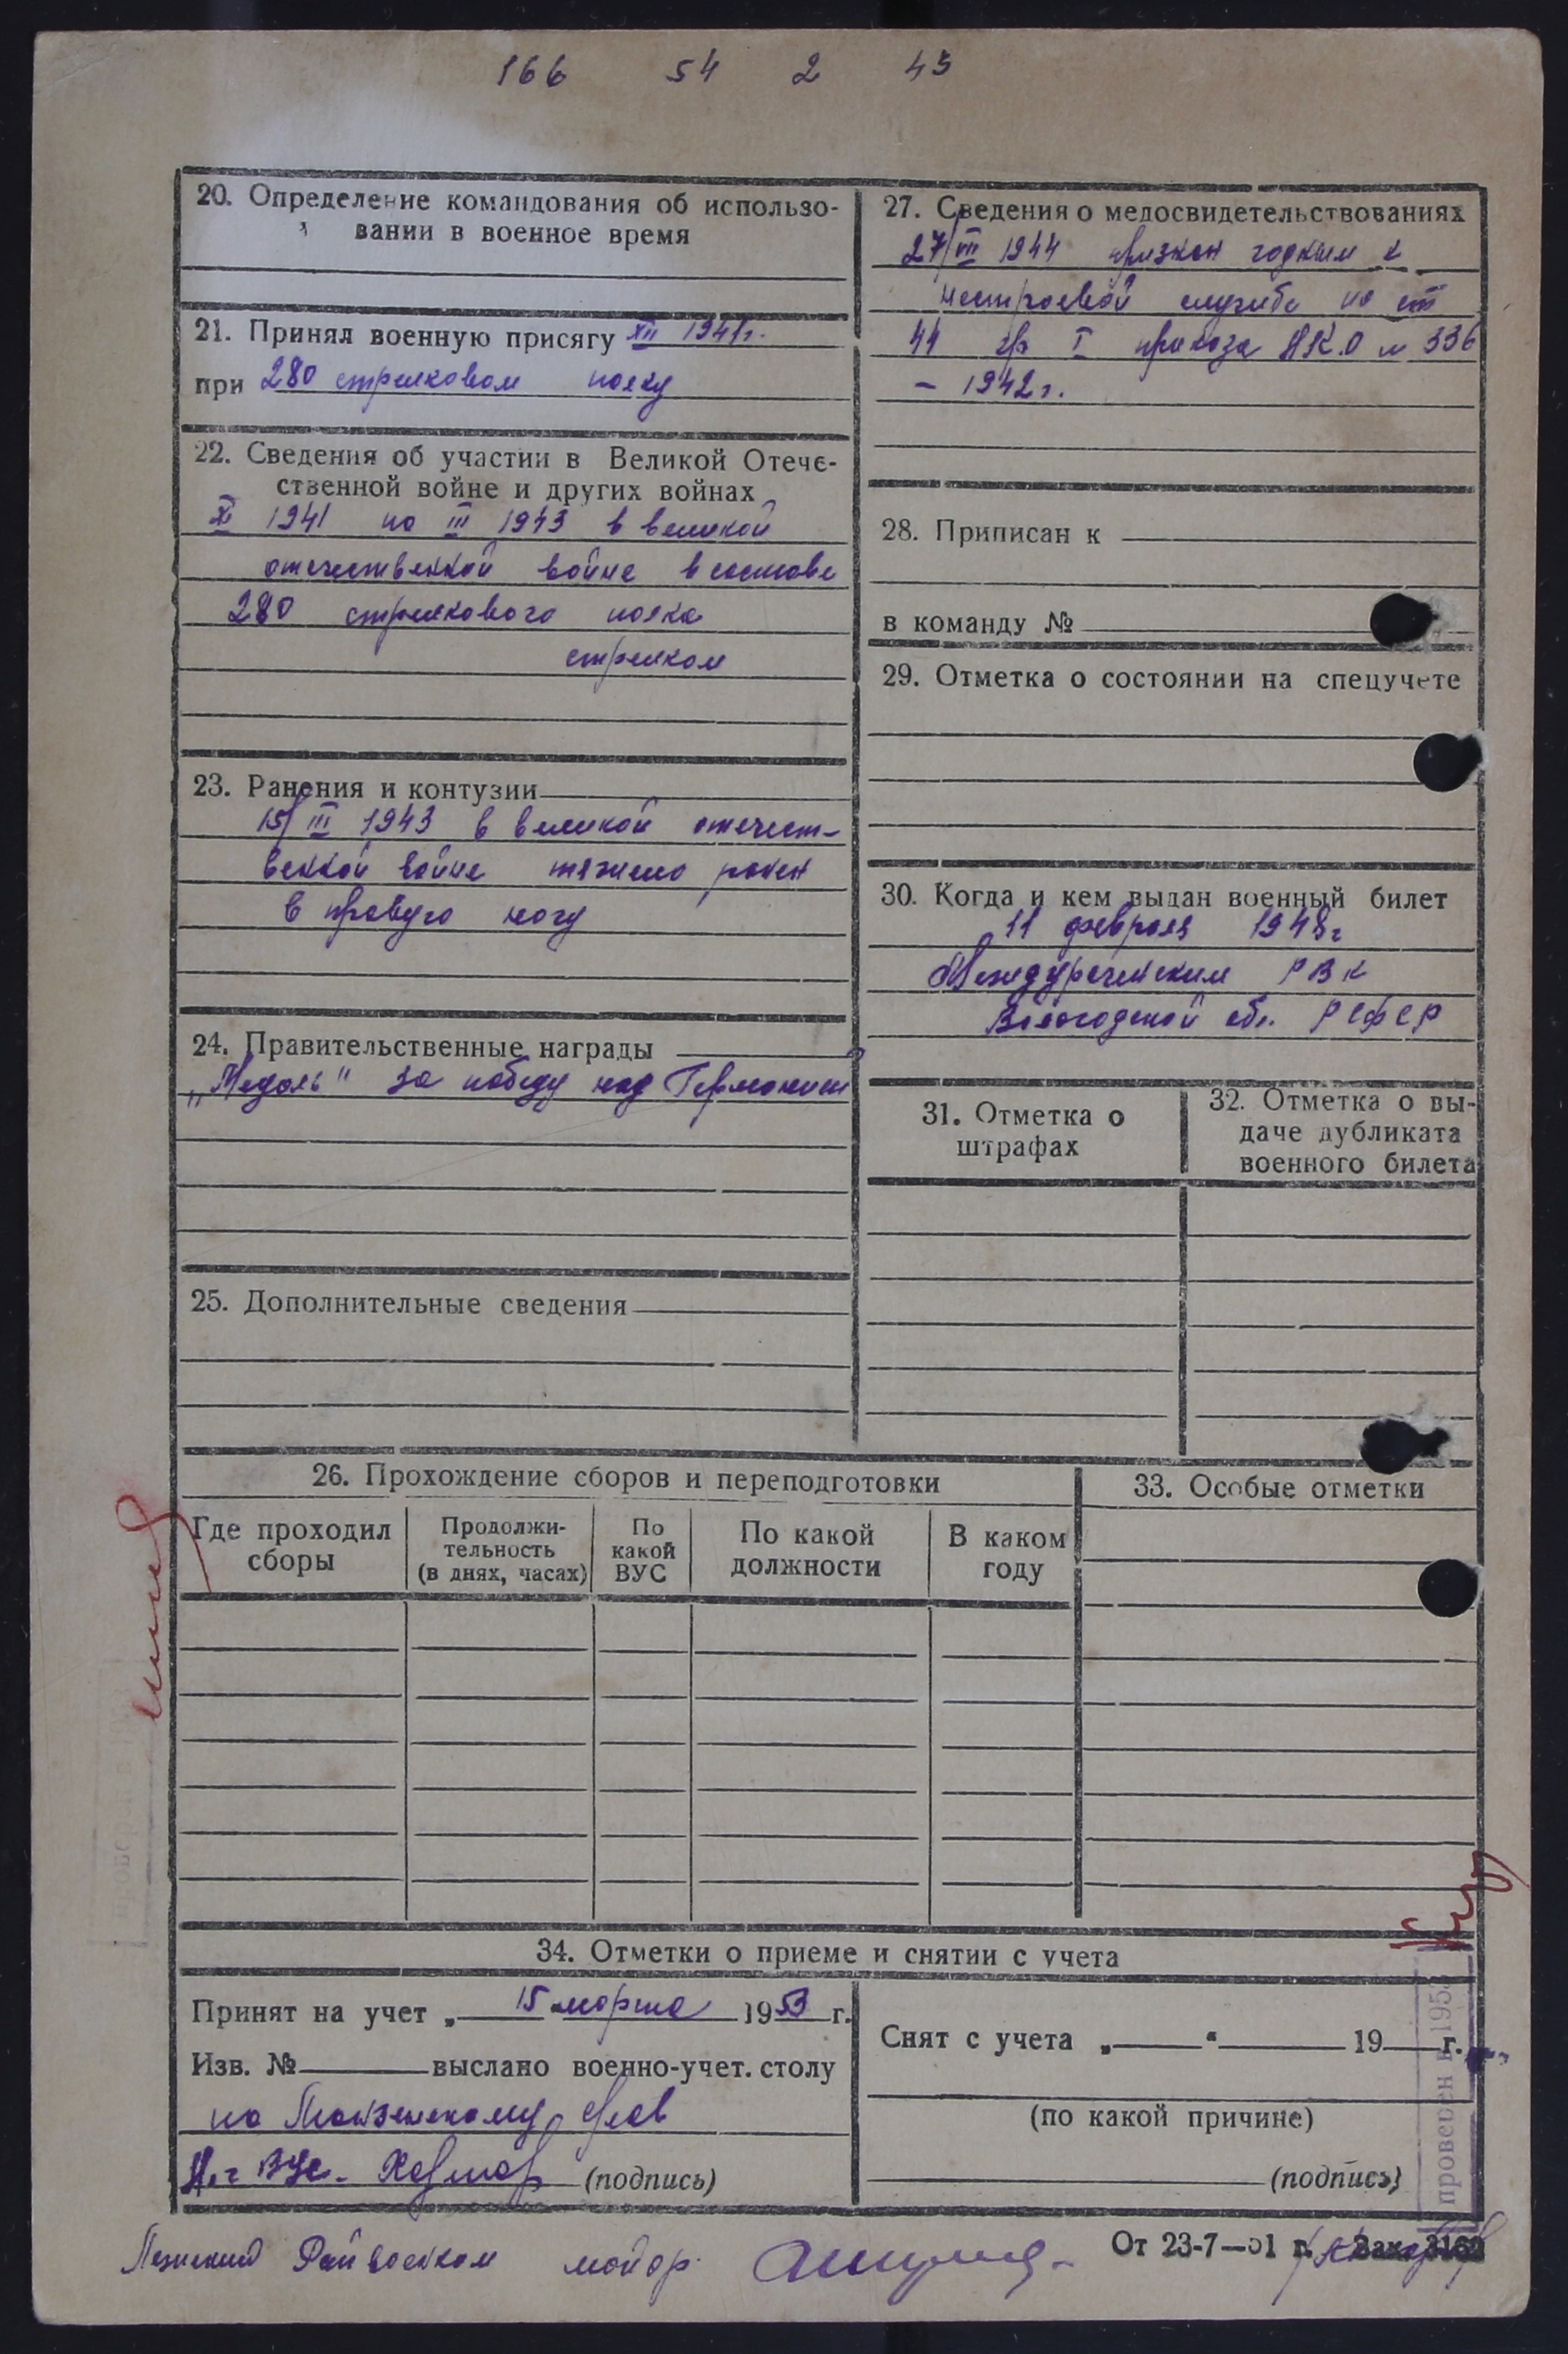 166 54 2 43
20. Определение командования об использо-
вании в военное время
21. Принял военную присягу XII 1941г.
при 280 стрелковом полку
22. Сведения об участии в Великой Отече-
ственной войне и других войнах
XI 1941 по III 1943 в великой
отечественной войне в составе
280 стрелкового полка
стрелком
23. Ранения и контузии
15/III 1943 в великой отечест-
венной войне тяжело ранен
в правую ногу
24. Правительственные награды
„Медаль" за победу над Германией
25. Дополнительные сведения
27. Сведения о медосвидетельствованиях
27/VII 1944 признан годным к
нестроевой службе по ст
44 гр I приказа НК.О № 336
– 1942г.
28. Приписан к
в команду №
29. Отметка о состоянии на спецучете
30. Когда и кем выдан военный билет
11 февраля 1948г
Междуреченским РВК
Вологодской обл. РСФСР
31. Отметка о
штрафах
32. Отметка о вы-
даче дубликата
военного билета
26. Прохождение сборов и переподготовки
Где проходил
сборы
Продолжи-
тельность
(в днях, часах)
По
какой
ВУС
По какой
должности
В каком
году
33. Особые отметки
34. Отметки о приеме и снятии с учета
Принят на учет „ 15 марта 1953 г.
Изв. № выслано военно-учет. столу
по
(подпись)
Снят с учета „ “ 19 г.
(по какой причине)
(подпись)
проверен в 195
Райвоенком майор
От 23-7—51 г. Зак. 3162